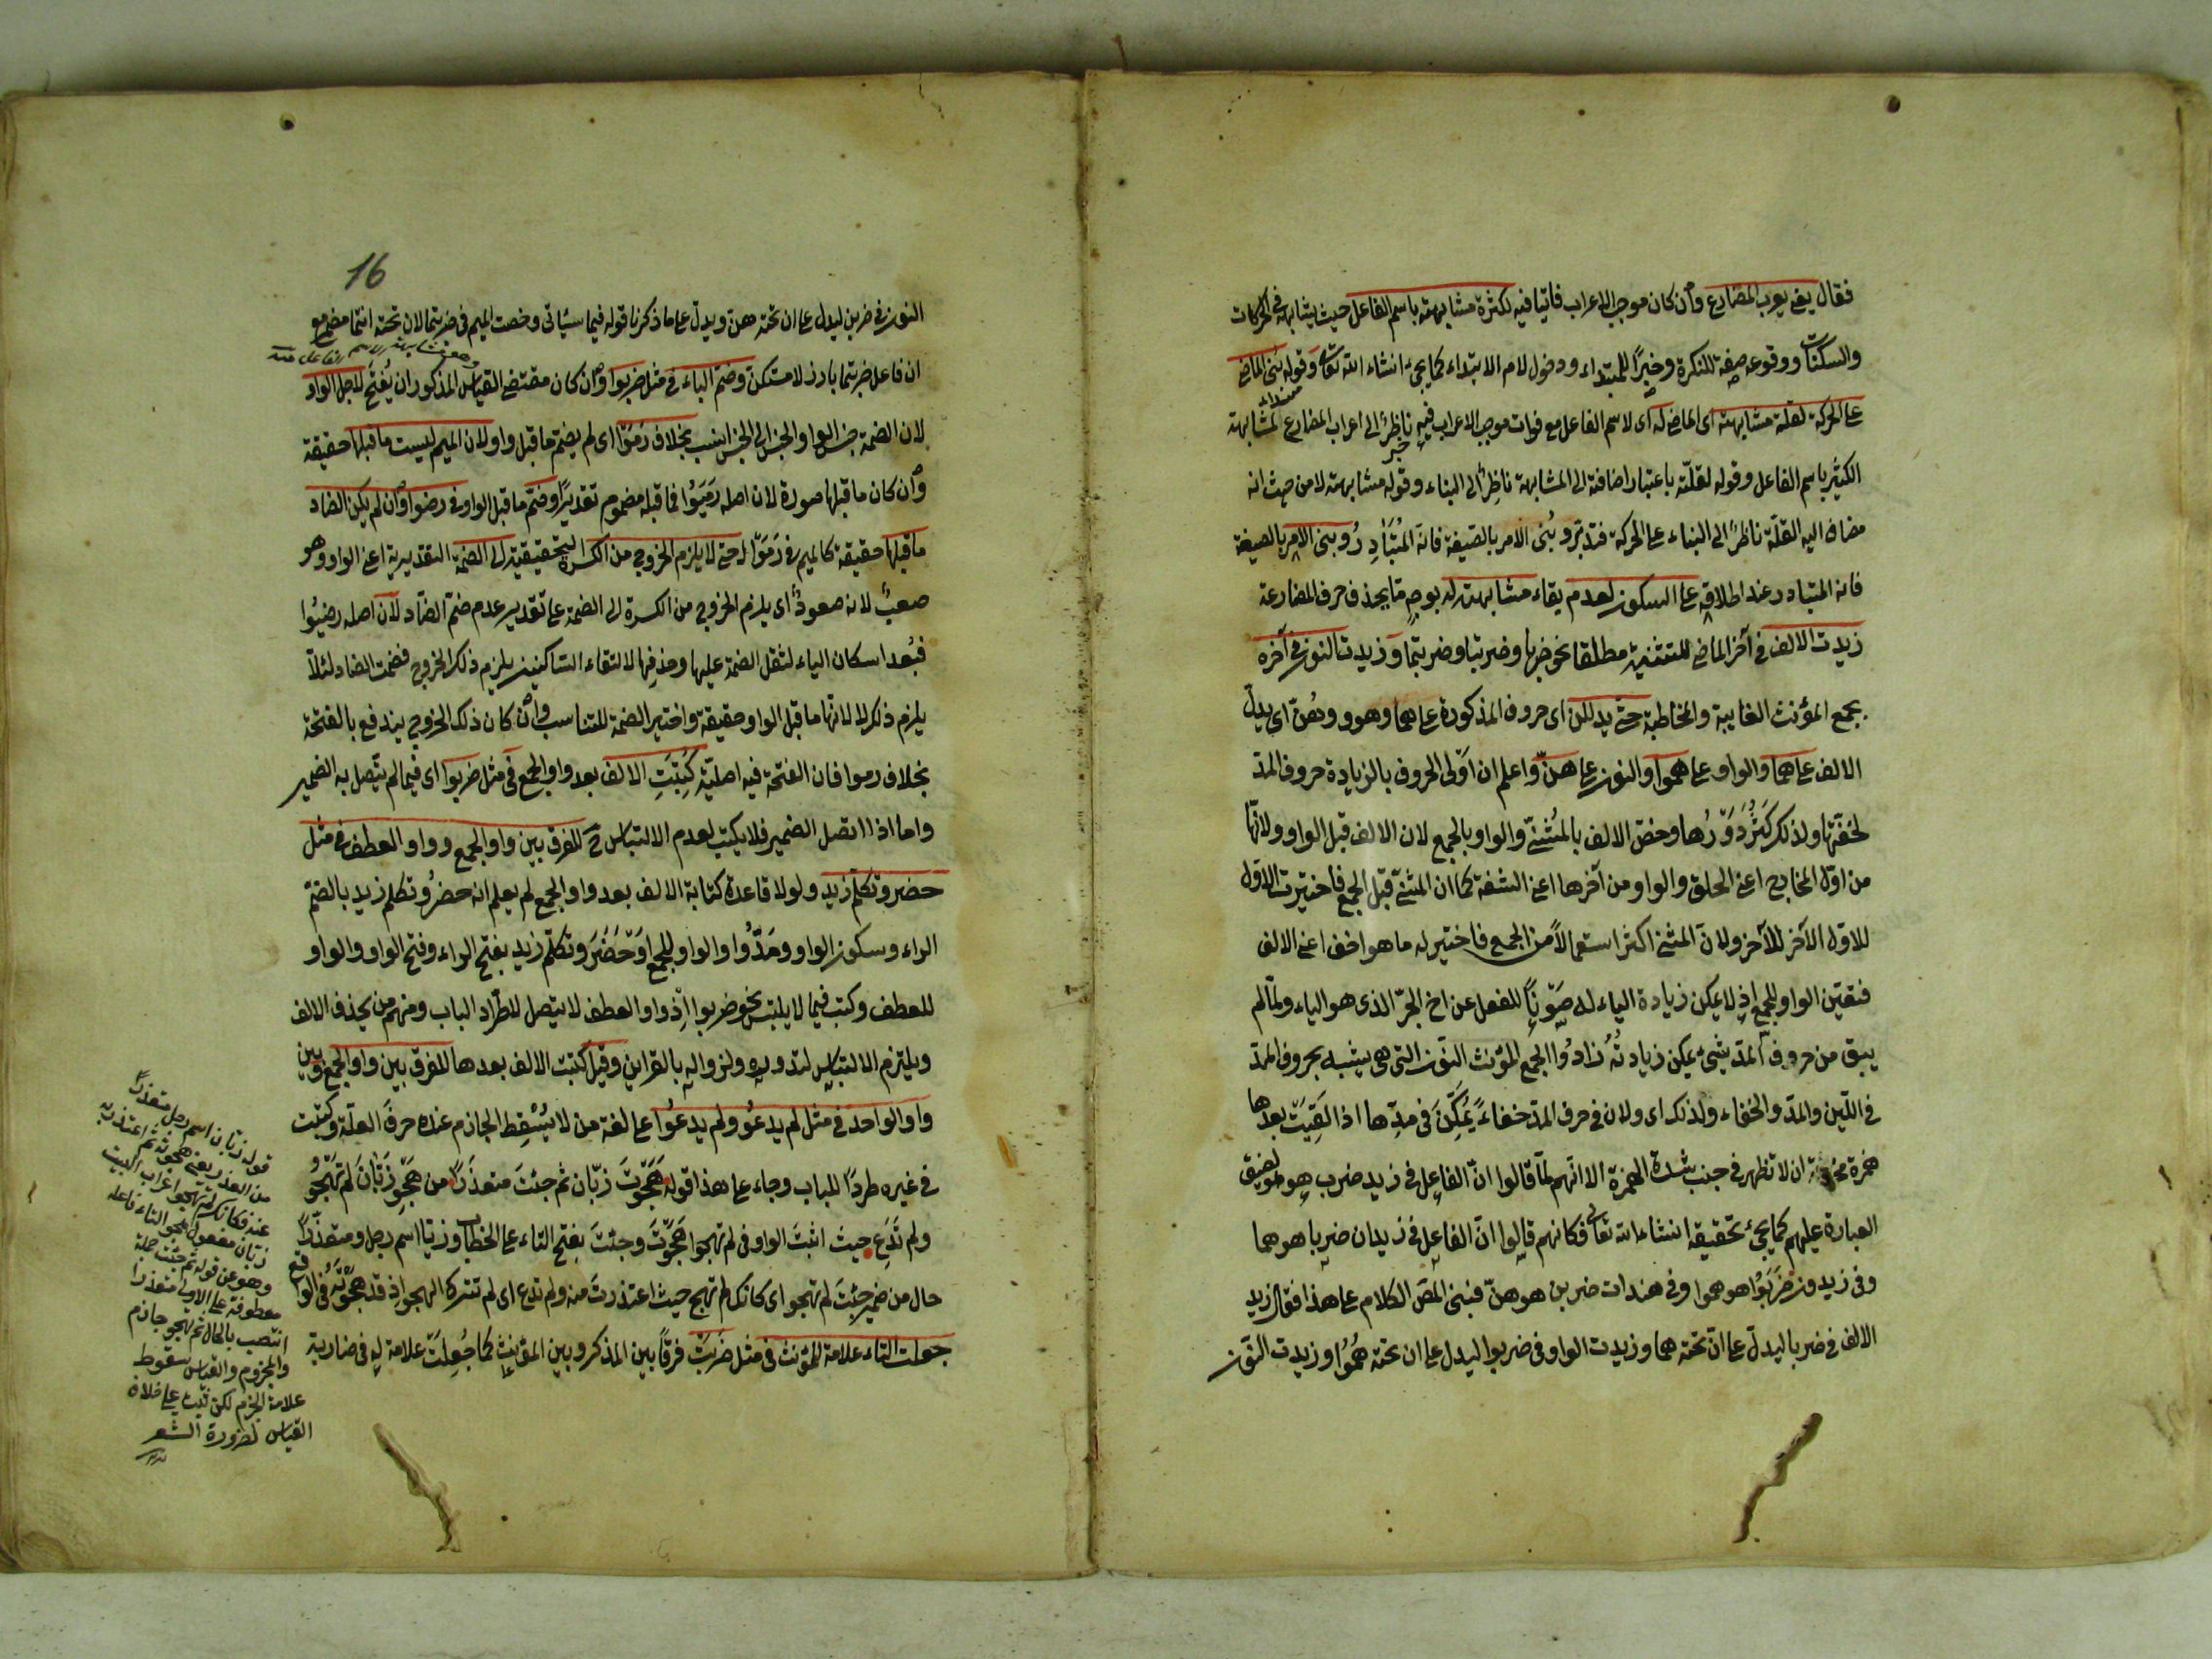 فقال يعنى يعرب المضارع وان كان موجب الاعراب فائتا فيه لكثرة مشابهته باسم الفاعل حيث يشابهه فى الحركات
والسكنات ووقوعه صفة للنكرة وخبرًا للمبتداء ودخول لام الابتداء كما يجئ انشاء الله تعالى وقوله بنى الماضى
على الحركة لقلة مشابهته اى الماضى له اى لاسم الفاعل مع فوات موجب الاعراب فيه ناظر الى اعراب المضارع لمشابهته
الكثير باسم الفاعل وقوله لقلّته باعتبار اضافته الى المشابهة ناظِرٌ الى البناء وقوله مشابهته لا من حيث انه
مضاف اليه القلّة ناظرٌ الى البناء على الحركة فتدبّر وبُنى الامر بالصيغة فانه المُتَبَادِرُ وبنى الامر بالصيغة
فانه المتبادر عند اطلاقه على السكون لعدم بقاء مشابهته له بوجهٍ مّا بحذف حرف المضارعة
زيدت الالف فى آخر الماضى للتثنية مطلقا نحو ضربا وضربتا وضربتما وزيدت النون فى آخره
بجمع المؤنث الغايبة والمخاطبة حتى يدللن اى حروف المذكورة على هما وهوو وهُنّ اى يدلّ
الالف على هما والواو على هموا والنون على هنّ واعلم ان اَوْلى الحروف بالزيادة حروف المدّ
لخفّتها ولذلك كَثُرَ دَوَرُها وخصّ الالف بالمُثنىّ والواو بالجمع لان الالف قبل الواو ولانّها
من اوّل المخارج اعنى الحلق والواو من آخرها اعنى الشفة كما ان المثنىّ قبل الجمع فاختيرت الاوّل
للاوّل الآخر للآخر ولانّ المثنى اكثر استعمالاً من الجمع فاختير له ما هو اخف اعنى الالف
فتعيّن الواو للجمع اذ لا يمكن زيادة الياء له صَوْنًا للفعل عن اخ الجرّ الذى هو الياء ولمّا لم
يبق من حروف المدّ شئ يمكن زيادتُهُ زادُوا الجمع المؤنث النّون التى هى يشبه بحروف المدّ
فى اللّين والمدّ والخفاء ولذلك اى ولان فى حرف المدّ خفاءً يُمَكَّن فى مدّها اذا لَقِيَتْ بعدها
همزة ان لا تظهر فى جنب شدة الهمزة الا انّهم لمّا قالوا انّ الفاعل فى زيد ضرب هو لضيق
العبارة عليهم كما يجئ تحقيقه انشاء الله تعالى فكانهم قالوا انّ الفاعِل فى زيدان ضربا هو هما
وفى زيدون ضَرَبُوا هو هموا وفى هندات ضربن هو هنّ فبنى المص الكلام على هذا فقال زيد
الالف فى ضربا ليدلّ على انّ تحته هما وزيدت الواو فى ضربوا ليدل على ان تحته هُمُوا وزيدت النّون
16
النون فى ضربن ليدل على ان تحته هنّ ويدلّ على ما ذكرنا قوله فيما سيأتى وخصت الميم فى ضربتما لان تحته انتما مضمر مع
ان فاعل ضربتما بارز لا مستكنّ وضمّ الباء فى مثل ضربوا وان كان مقتضى القياس المذكور ان يُفتح لاجل الواو
لان الضمة جنس الواو والجنس الى الجنس انسب بخلاف رَمَوْا اى لم يضمّ ما قبل واو لان الميم ليست ما قبلها حقيقة
وان كان ما قبلها صورة لان اصله رَمَيُوا فما قبله مضموم تقديرًا وضمّ ما قبل الواو فى رضوا وان لم يكن الضاد
ما قبلها حقيقة كالميم فى رَمَوْا حتى لا يلزم الخروج من الكسرة التحقيقية الى الضمة التقديرية اعنى الواو وهو
صعبٌ لانه صعودٌ اى يلزم الخروج من الكسرة الى الضمة على تقدير عدم ضمّ الضّاد لان اصله رضيُوا
فبُعد اسكان الياء لثقل الضمة عليها وحذفها لالتقاء السّاكنين يلزم ذلك الخروج فضمت الضاد لئلاّ
يلزم ذلك لا لانّها ما قبل الواو حقيقة واختير الضمة للتناسب وان كان ذلك الخروج يندفع بالفتحة
بخلاف رموا فان الفتحة فيه اصليّة كُتِبَتِ الالف بعد واو الجمع فى مثل ضربوا اى فيما لم يتّصل به الضمير
واما اذا اتصل الضمير فلا يكتب لعدم الالتباس ح للفرق بين واو الجمع وواو العطف فى مثل
حضر وتكلّم زيد ولولا قاعدة كتابة الالف بعد واو الجمع لم يعلم انه حضرُو تكلم زيد بالضمّ
الراء وسكون الواو ومَدُّوا والواو للجمع اوَ حَضَرَ وتكلّم زيد بفتح الراء وفتح الواو والواو
للعطف وكتب فيما لا يلتبس نحو ضربوا اِذ واو العطف لا يتصل للاطّراد الباب ومنهم من يحذف الالف
ويلتزم الالتباس لندوره ولزواله بالقراين وقيل كتبت الالف بعدها للفرق بين واو الجمع وبين
واو الواحد فى مثل لم يدعُو ولم يدعُوا على لغة من لا يُسْقِط الجازم عنده حرفَ العلّة وكتبت
فى غيره طردًا للباب وجاء على هذا قوله هَجَوْتَ زبّان ثم جئتَ معتذرًا من هَجْوِ زَبّانَ لم تهجُو
ولم تَدَعِ حيث اثبتَ الواو فى لم تهجوا هَجَوْتَ وجئتَ بفتح التاء على الخطاب وزبّا اسم رجل ومعتذرًا
حال من ضمير جئتَ لم تهجو اى كانك لم تهج حيث اعتذرتَ منه ولم تدع اى لم تترك الهجو اذ قد هجوْتَه فى الواقع
جعلت التاء علامة للمؤنث فى مثل ضَرَبَتْ فرقًا بين المذكر وبين المؤنث كما جُعِلَتْ علامة له فى ضاربة
قوله زبّان اسم رجل معتذرًا
من العذر يعنى هجوته ثم اعتذر به
عنه فكانك لم تهجو اعراب البيت
زبّان مفعول لهجو التاء فاعله
وهو عن قوله ثم جئت جملة
معطوفة على الاولى معتذرا
انتصب بالحال ثم تهجو جازم
والمجزوم والقياس سقوط
علامة الجزم لكن ثبت على خلاف
القياس لضرورة الشعر